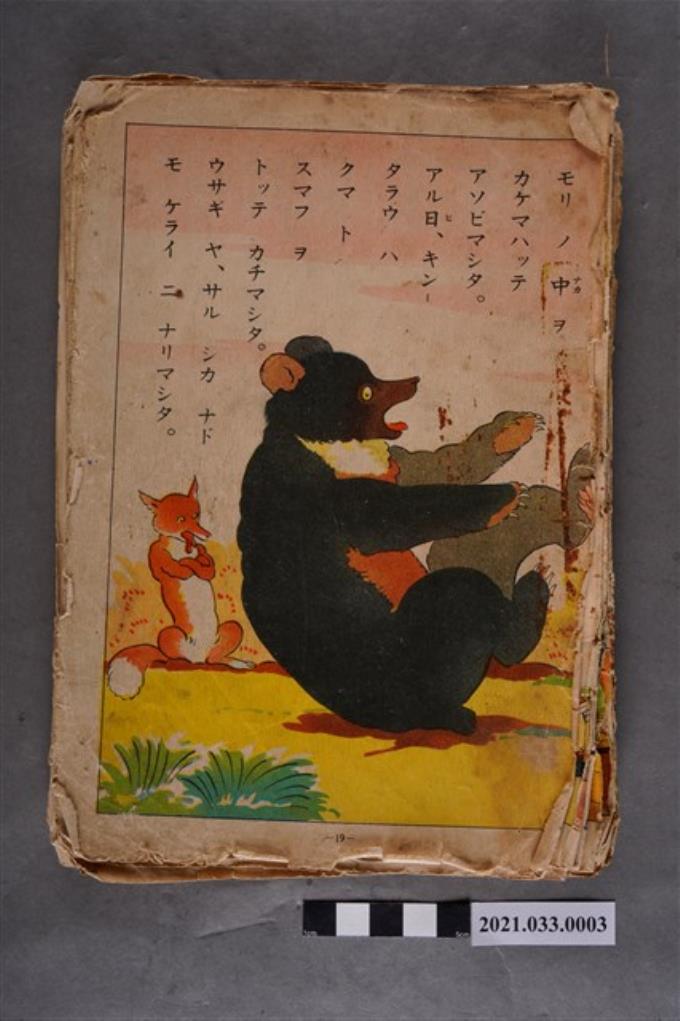 モリ ノ 中ナカ ヲ
カケマハッテ
アソビマシタ。
アル日ヒ、キン
タラウ ハ
クマ ト
スマフ ヲ
トッテ カチマシタ。
ウサギ ヤ、サル シカ ナド
モ ケライ ニ ナリマシタ。
—19—
2021.033.0003